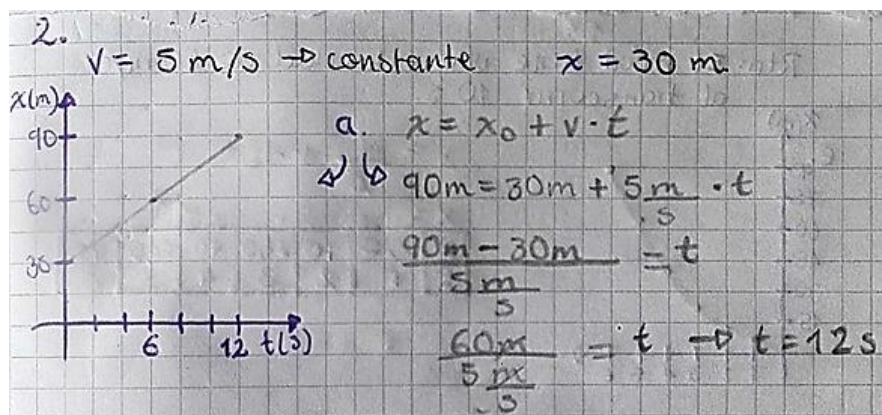 2.
v = 5 m/s → constante x = 30 m
x(m)
90
60
30
6 12 t(s)
a. x = x₀ + v · t
90m = 30m + 5 m/s · t
(90m - 30m) / (5 m/s) = t
60m / (5 m/s) = t → t = 12 s